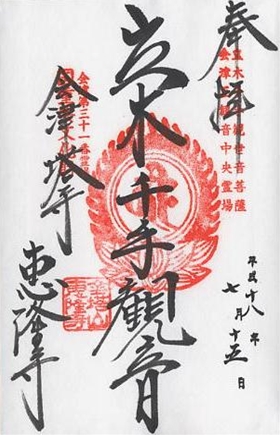 奉拝
立木観世音菩薩
会津観音中央霊場
立木千手観音
会津第三十一番霊場
会津塔寺
恵隆寺
平成十八年
七月十五日